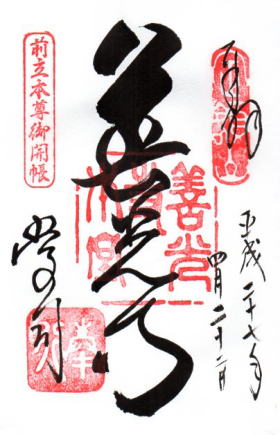 奉拝
平成二十七年
四月二十二日
善光寺
前立本尊御開帳
堂司